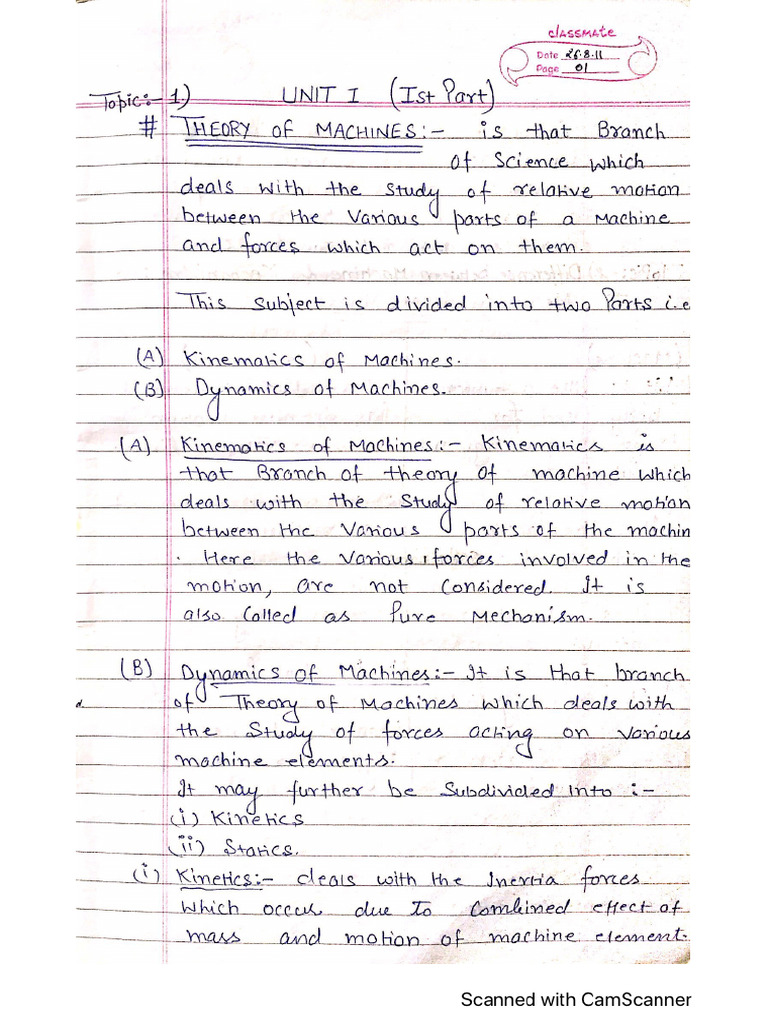 classmate
Date 26.8.11
Page 01
Topic:- 1) UNIT I (Ist Part)
# THEORY OF MACHINES:- is that Branch
of Science which
deals with the study of relative motion
between the various parts of a Machine
and forces which act on them.
This Subject is divided into two Parts i.e
(A) Kinematics of Machines.
(B) Dynamics of Machines.
(A) Kinematics of Machines:- Kinematics is
that Branch of theory of machine which
deals with the study of relative motion
between the various parts of the machin
. Here the various forces involved in the
motion, are not Considered. It is
also Called as Pure Mechanism.
(B) Dynamics of Machines:- It is that branch
of Theory of Machines which deals with
the Study of forces acting on various
machine elements.
It may further be Subdivided Into :-
(i) Kinetics
(ii) Statics.
(i) Kinetics:- deals with the Inertia forces
which occus due to Combined effect of
mass and motion of machine element.
Scanned with CamScanner